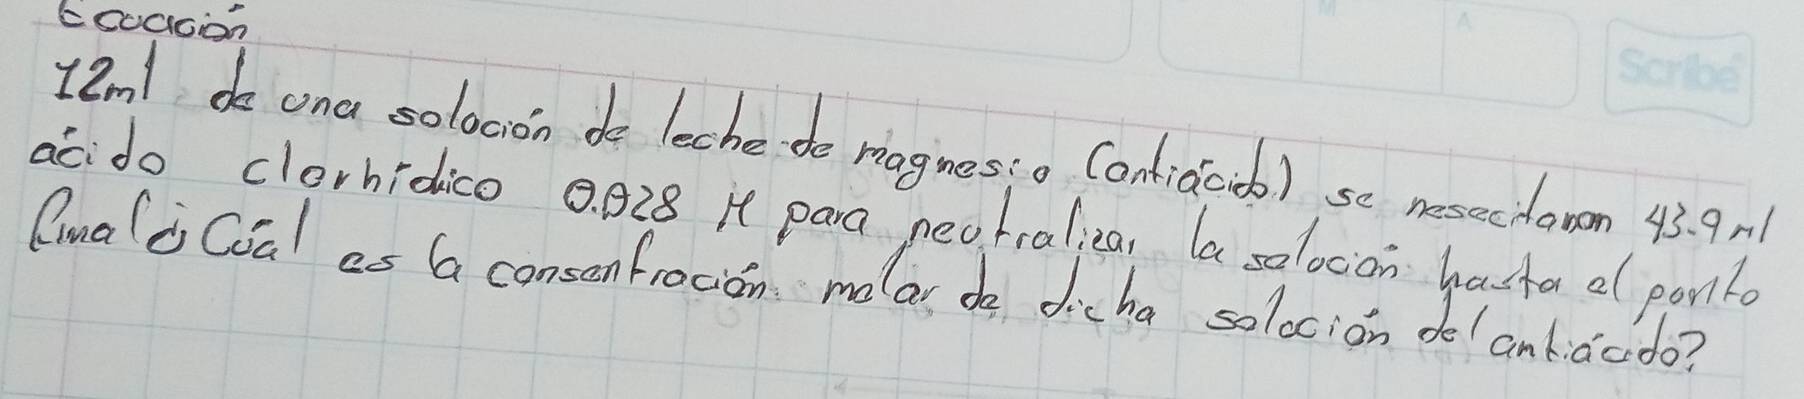 Ecoación
12ml de una soloción de leche de magnesio (antiácido) se nesecitaron 43.9 ml
ácido clorhídico 0.028 M para neutralizar la soloción hasta el ponto
final ¿Cúal es la consentración molar de dicha soloción del antiácido?
Scribe